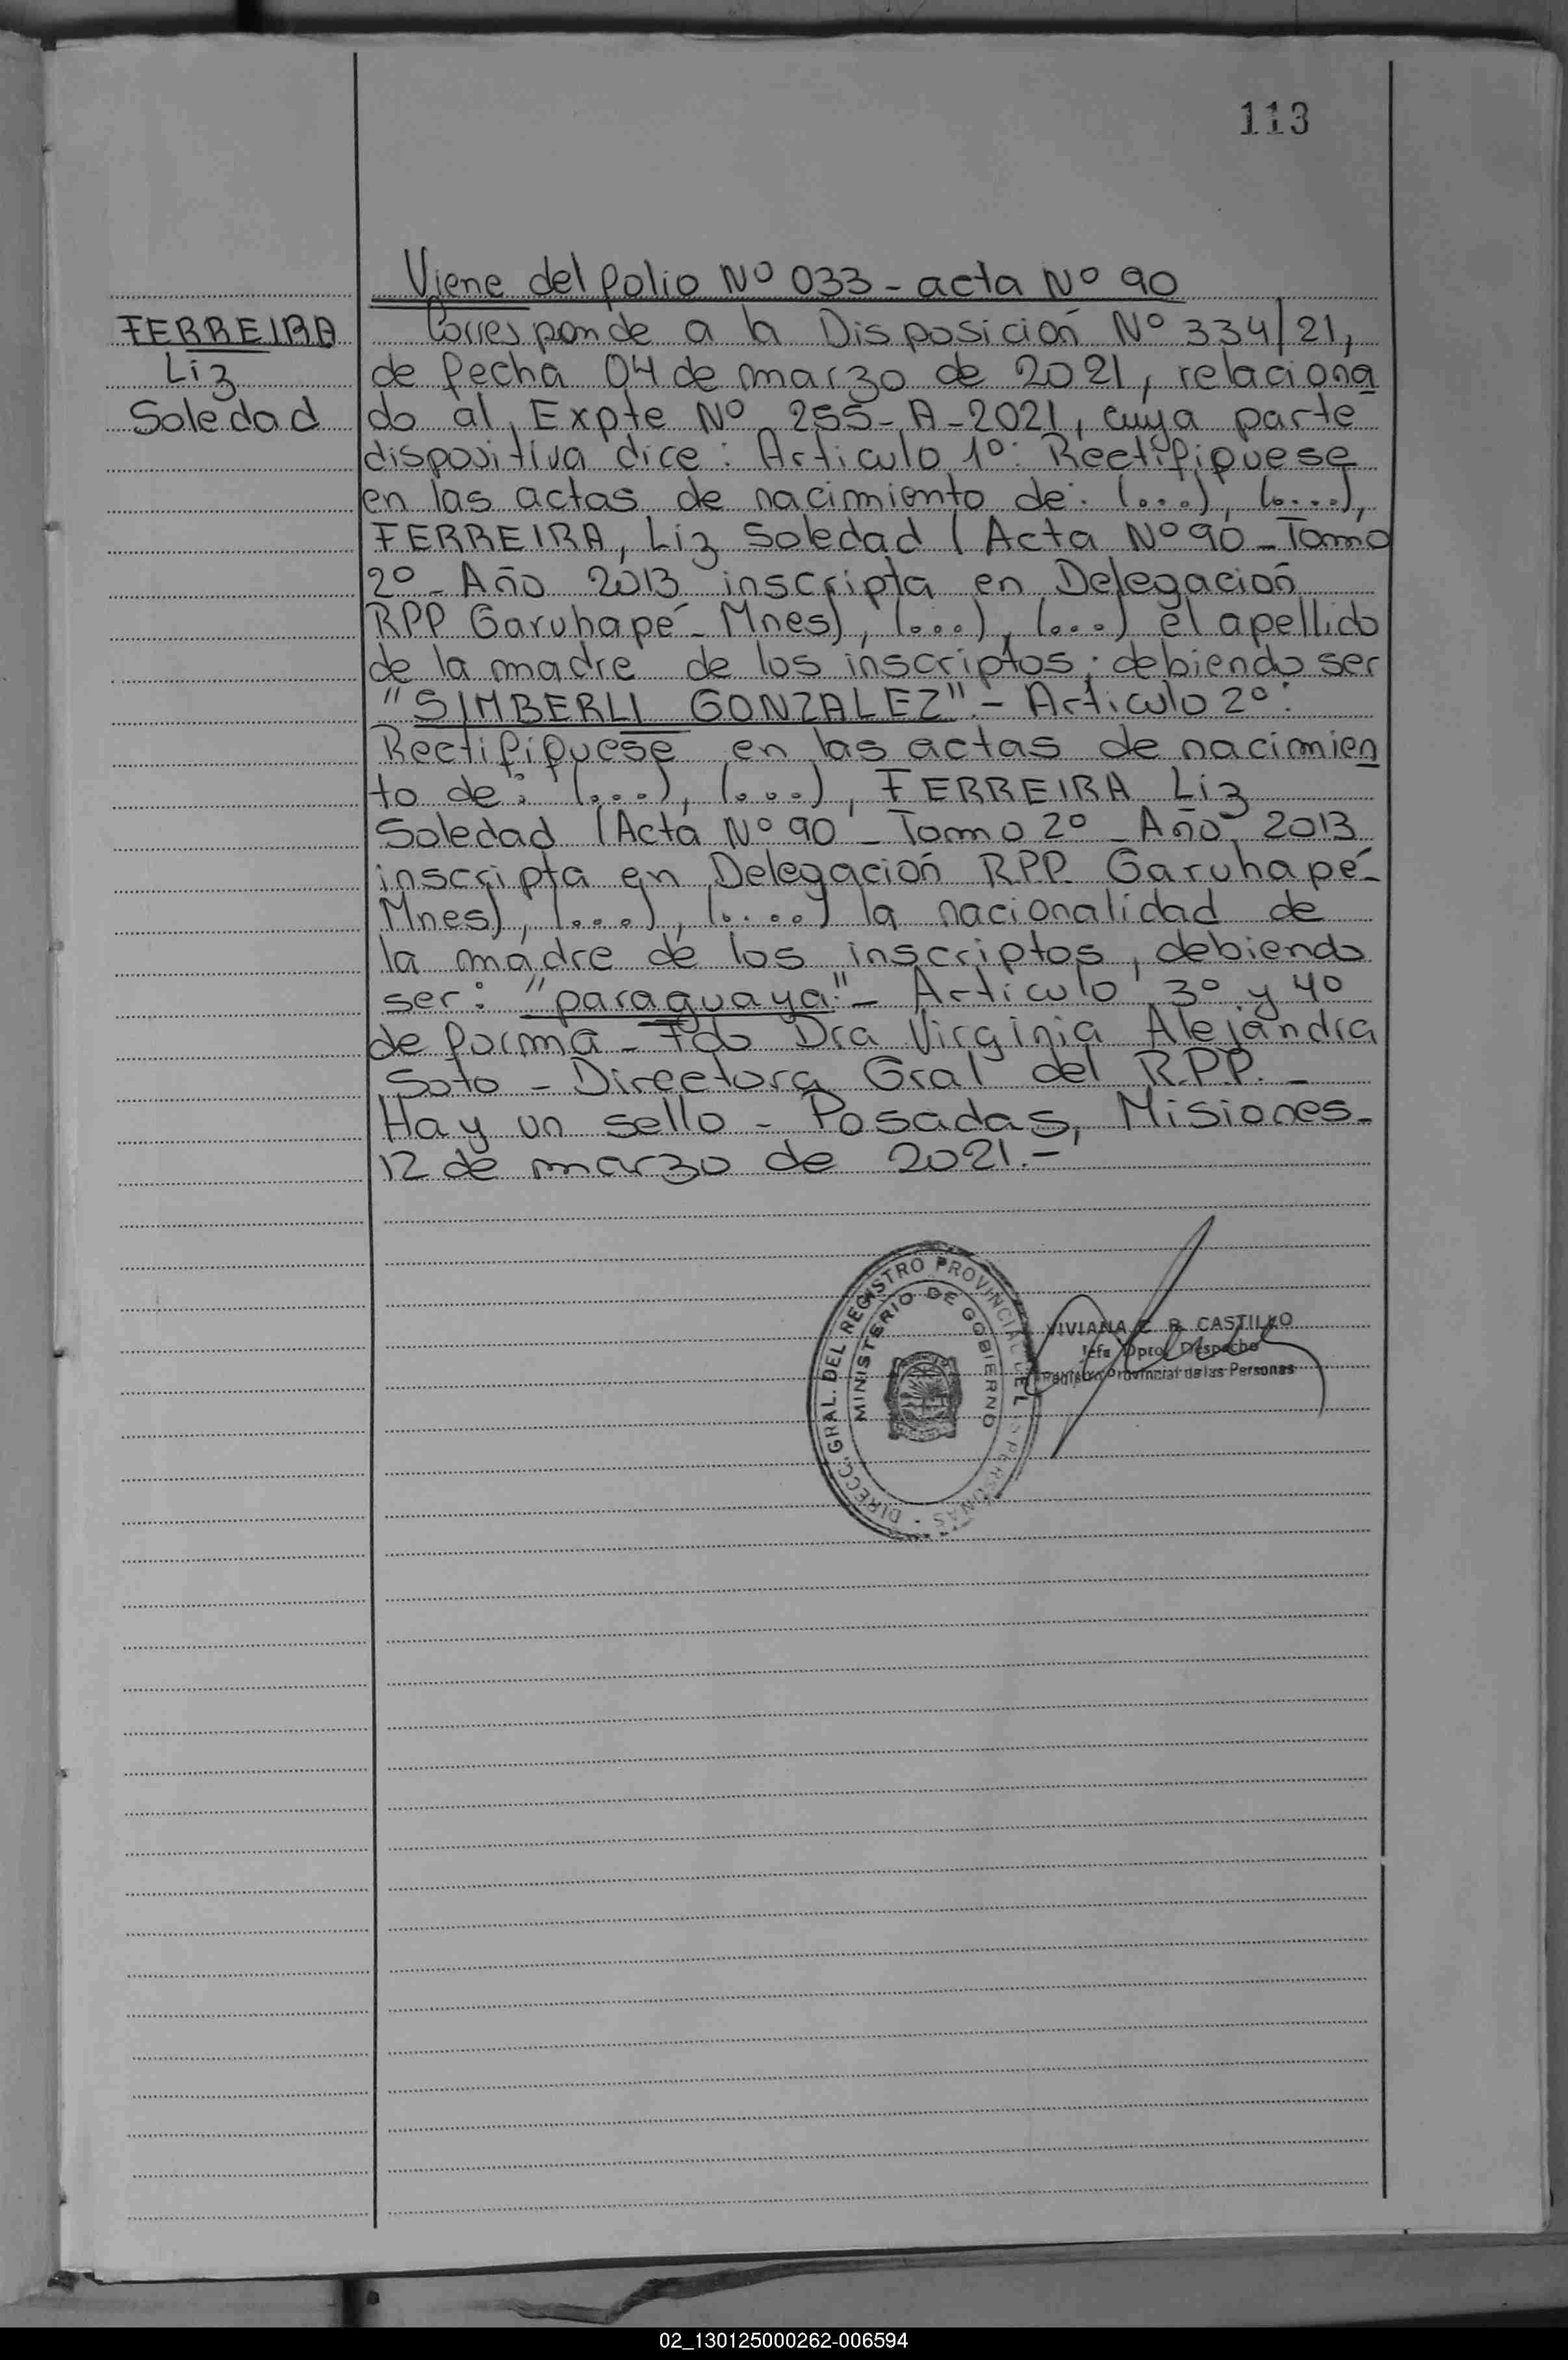 113
Viene del folio Nº 033 - acta Nº 90
FERREIRA
Liz
Soledad
Corresponde a la Disposición Nº 334/21,
de fecha 04 de marzo de 2021, relaciona
do al Expte Nº 255-A-2021, cuya parte
dispositiva dice: Articulo 1º: Rectifiquese
en las actas de nacimiento de: (...), (....),
FERREIRA, Liz Soledad (Acta Nº 90 - Tomo
2º - Año 2013 inscripta en Delegación
RPP Garuhapé - Mnes), (...), (...) el apellido
de la madre de los inscriptos; debiendo ser
"SIMBERLI GONZALEZ".- Articulo 2º:
Rectifiquese en las actas de nacimien
to de: (...), (...), FERREIRA Liz
Soledad (Acta Nº 90 - Tomo 2º - Año 2013
inscripta en Delegación R.P.P. Garuhapé-
Mnes), (...), (....) la nacionalidad de
la madre de los inscriptos, debiendo
ser: "paraguaya".- Articulo 3º y 4º
de forma - Fdo Dra Virginia Alejandra
Soto - Directora Gral del R.P.P. -
Hay un sello - Posadas, Misiones-
12 de marzo de 2021.-
DIRECC. GRAL. DEL REGISTRO PROVINCIAL DE L PERSONAS -
MINISTERIO DE GOBIERNO
VIVIANA E. R. CASTILLO
Jefa Dpto. Despacho
Registro Provincial de las Personas
02_130125000262-006594